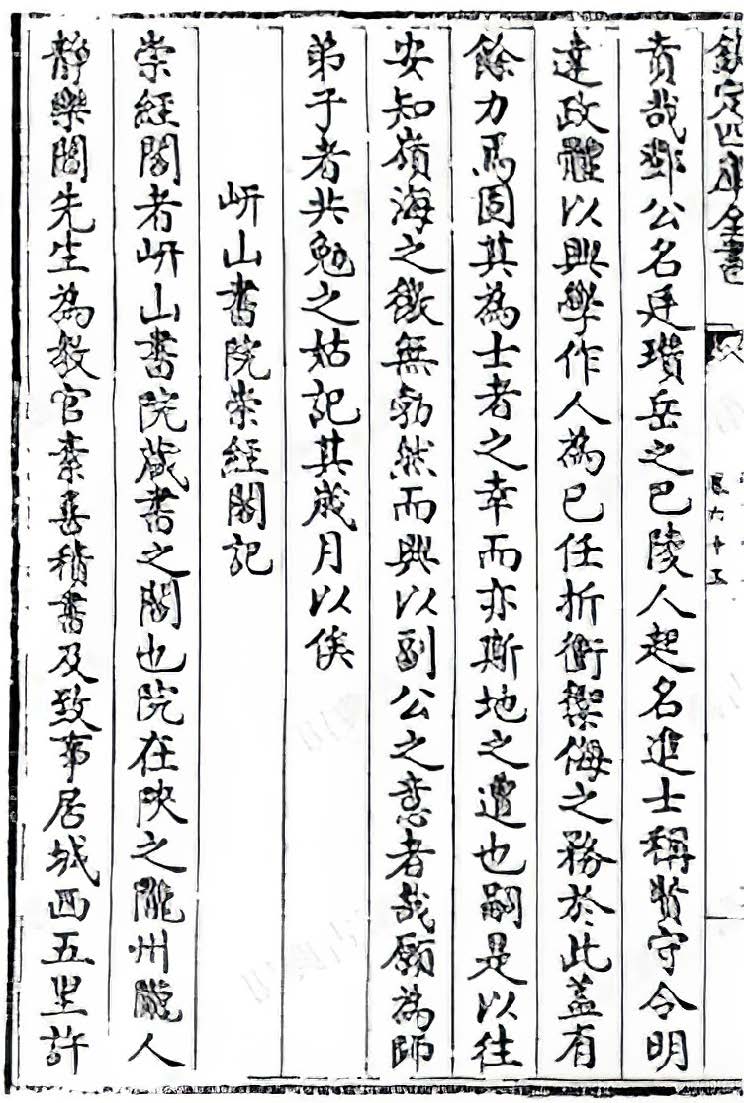 欽定四庫全書
卷六十五
責哉鄧公名廷瓚岳之巴陵人起名進士稱賢守令明
達政體以興學作人為己任折衝禦侮之務於此蓋有
餘力焉固其為士者之幸而亦斯地之遭也嗣是以往
安知嶺海之徼無勃然而興以副公之意者哉願為師
弟子者共勉之姑記其歲月以俟
岍山書院崇經閣記
崇經閣者岍山書院藏書之閣也院在陜之隴州隴人
靜樂閻先生為教官素喜積書及致事居城西五里許